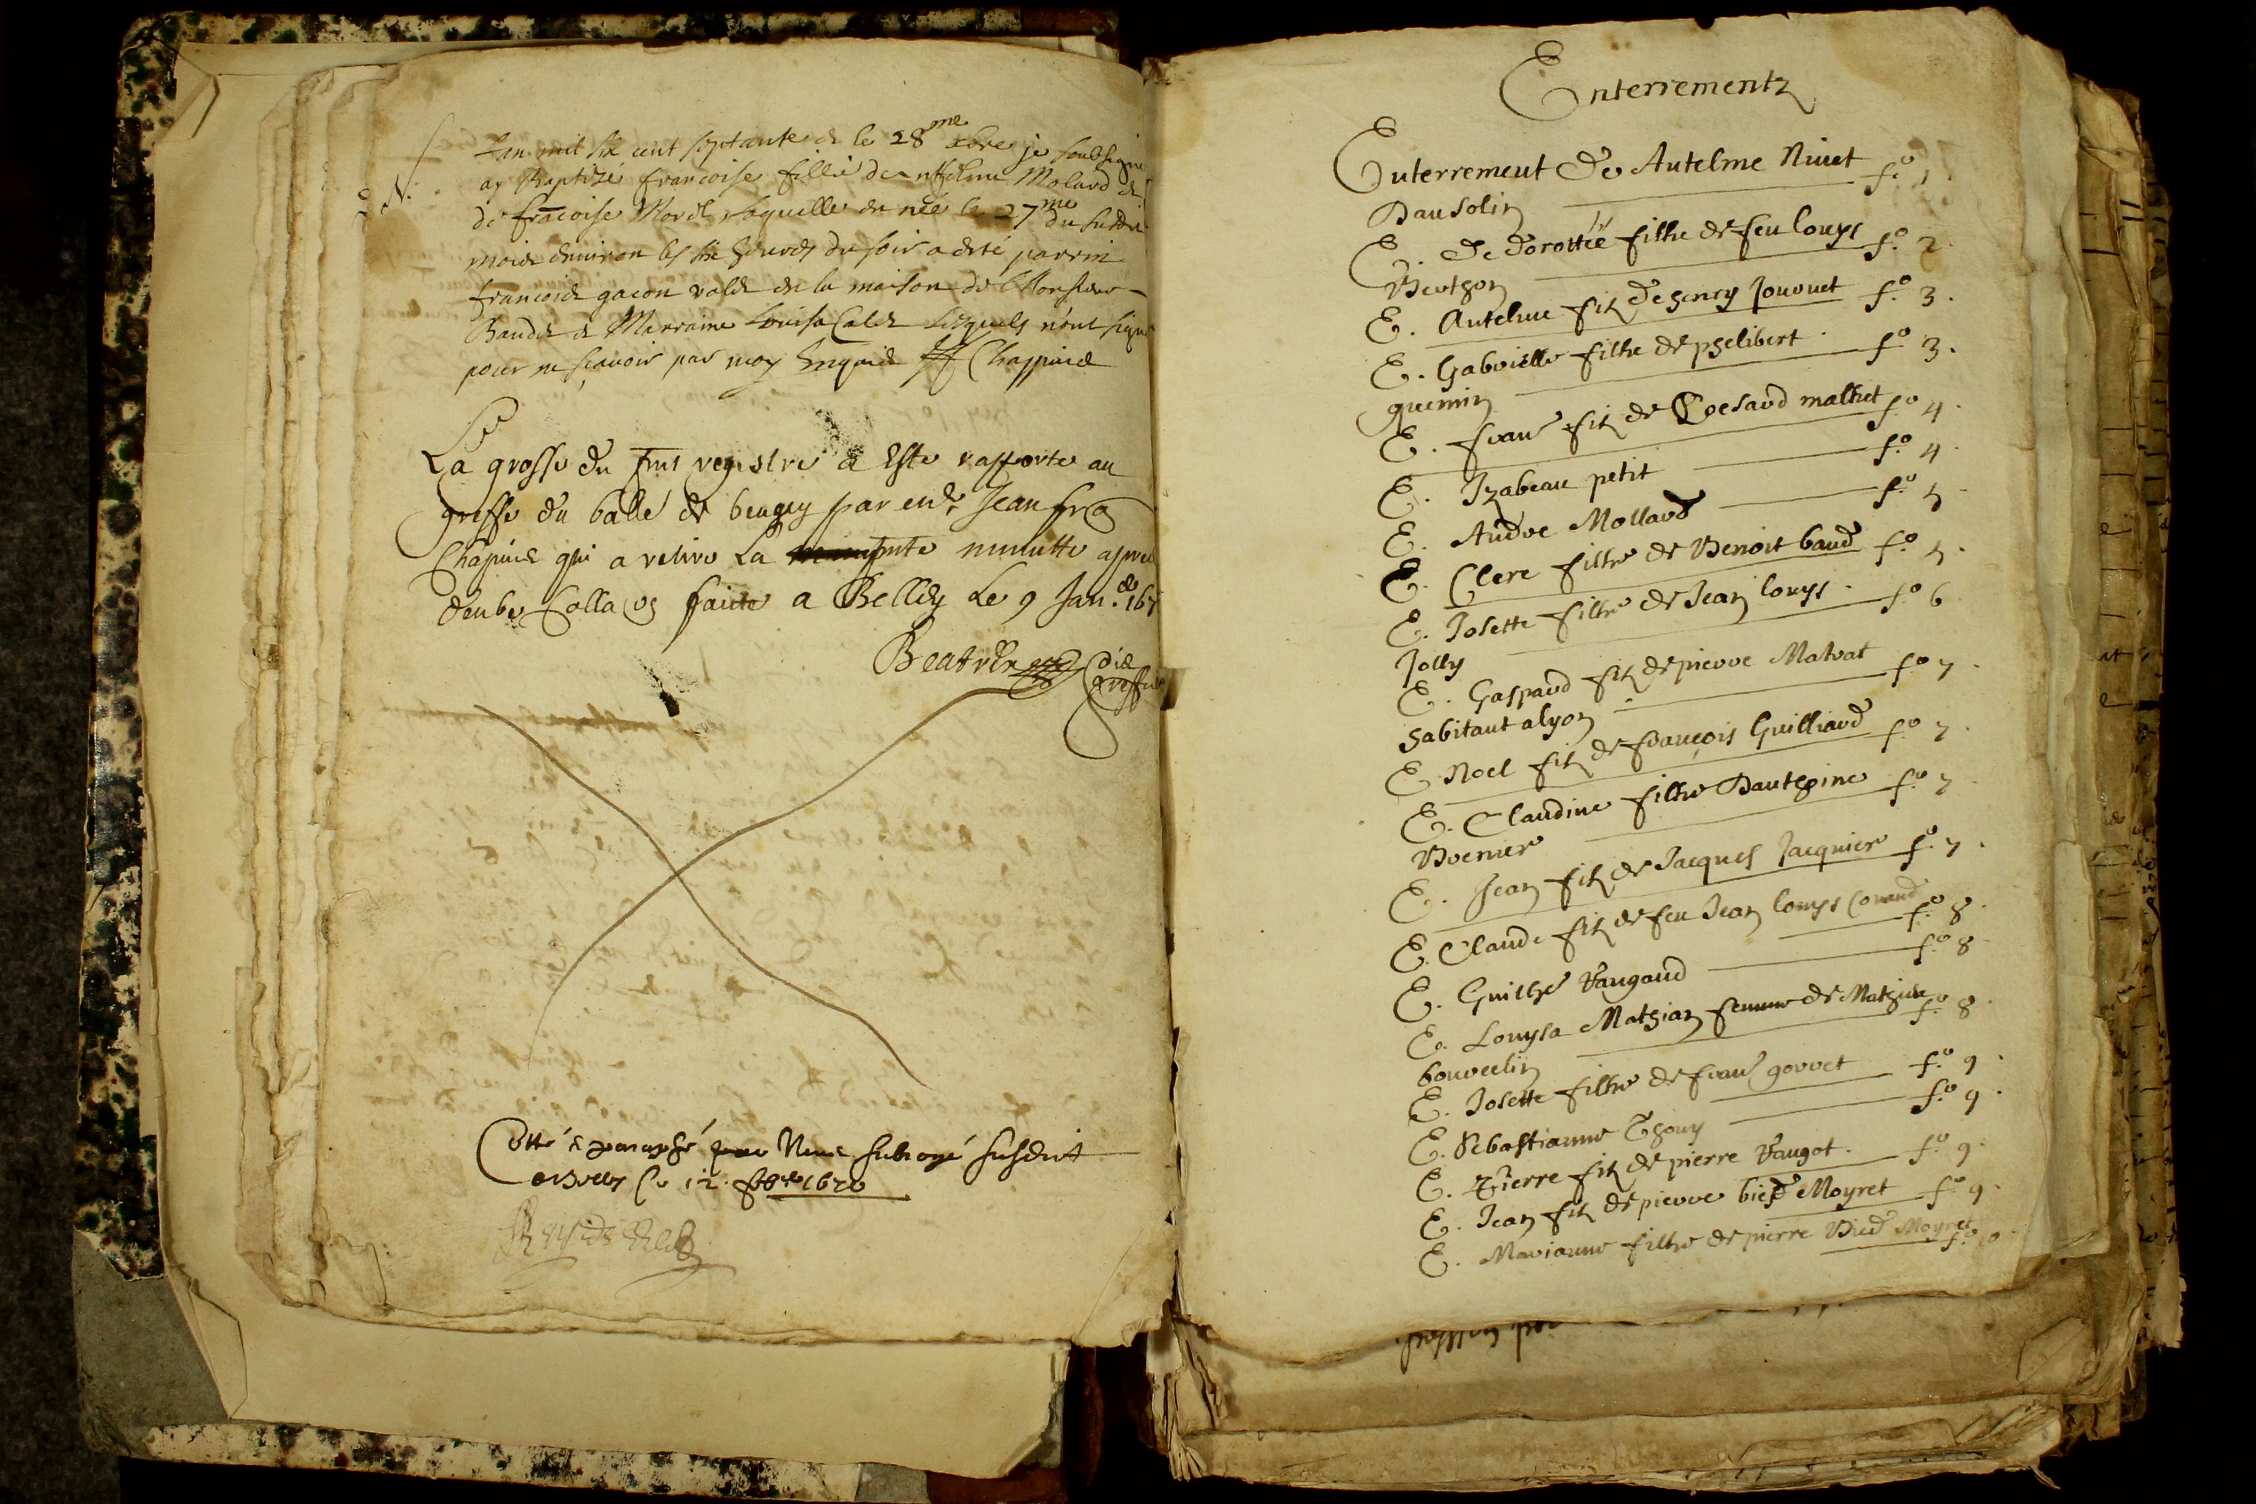 Lan mil six cent septante & le 28me xbre je soubsigne
ay Baptizé francoise fillie de antelme Molard &
de fracoise Morel laquelle est née le 27me du susdit
mois environ les six heures du soir a esté parrin
francois gacon valet de la maison de Monsieur
Baudet & Marraine Louisa Calet lesquels n'ont signé
pour ne scavoir par moy Enquis Chappuis
La grosse du pnt registre a Este rapporte au
greffe du balle de beugey par
Jean fra
Chapuis qui a retire La minutte apres
deube Colla faite a Belley Le 9 Jan. 167
Cotté & paraphé par Nous subrogé susdit
a Belley Ce 12 1670
Enterrementz
Enterrement De Antelme Nivet
Dansolin fo 1
E. De dorottéé filhe de feu louys
Berthon fo 2
E. Antelme filz de henry Jouvuet fo 3.
E. Gabrielle filhe de philibert
guemin fo 3.
E. franc filz de malhet fo 4.
E. Izabeau petit fo 4.
E. Andre Mollard fo 5
E. Clere filhe de Benoit baud fo 5.
E. Josette filhe de Jean louys
Jolly fo 6
E. Gaspard filz de pierre Malvat
habitant a lyon fo 7.
E. Noel filz de françois Guilliard fo 7.
E. Claudine filhe Danthoine
Bvernier fo 7
E. Jean filz de Jacques Jacquier fo 7.
E. Claude filz de feu Jean louys Conand fo 8.
E. Guilhe Vaugand fo 8
E. Louysa Mathian femme de Mathieu
bonvertin fo 8.
E. Josette filhe de franc gorret fo 9.
E. Sebastianne Thouy fo 9.
E. Pierre filz de pierre Vaugot. fo 9.
E. Jean filz de pierre bied Moyret fo 9.
E. Marianne filhe de pierre Bied Moyret